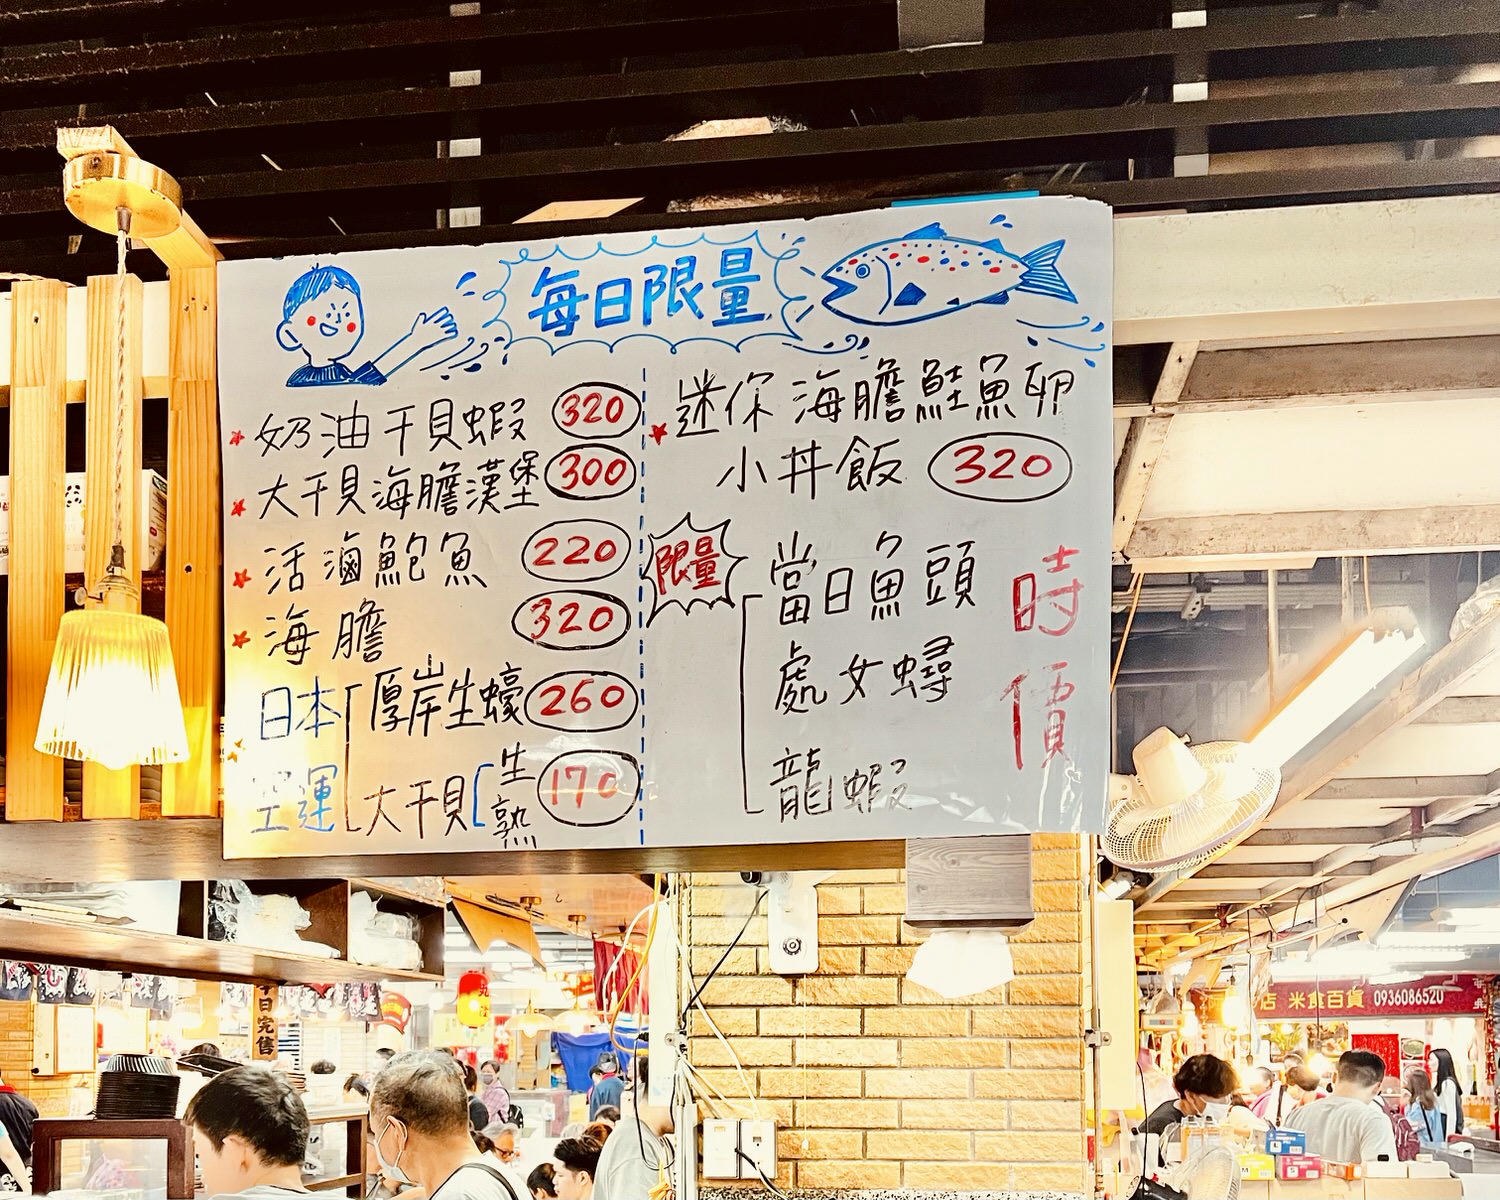 每日限量
奶油干貝蝦 320
大干貝海膽漢堡 300
活滷鮑魚 220
海膽 320
日本空運
厚岸生蠔 260
大干貝 生 熟 170
迷你海膽鮭魚卵
小丼飯 320
限量
當日魚頭
處女蟳
龍蝦
時價
日完售
店 米食百貨 0936086520